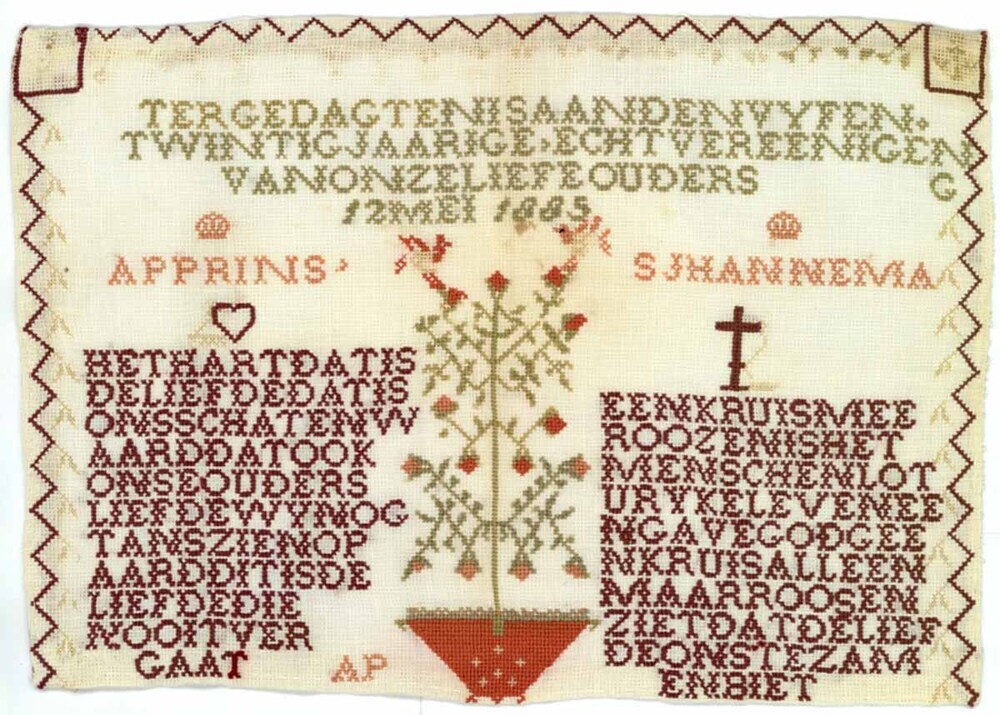 TERGEDAGTENISAANDENVYFEN.
TWINTIGJAARIGE.ECHTVEREENIGEN
G
VANONZELIEFEOUDERS
12MEI 1885
APPRINS
SJHANNEMA
HETHARTDATIS
DELIEFDEDATIS
ONSSCHATENW
AARDDATOOK
ONSEOUDERS
LIEFDEWYNOG
TANSZIENOP
AARDDITISDE
LIEFDEDIE
NOOITVER
GAAT
AP
EENKRUISMEE
ROOZENISHET
MENSCHENLOT
URYKELEVENEE
NGAVEGODGEE
NKRUISALLEEN
MAARROOSEN
ZIETDATDELIEF
DEONSTEZAM
ENBIET